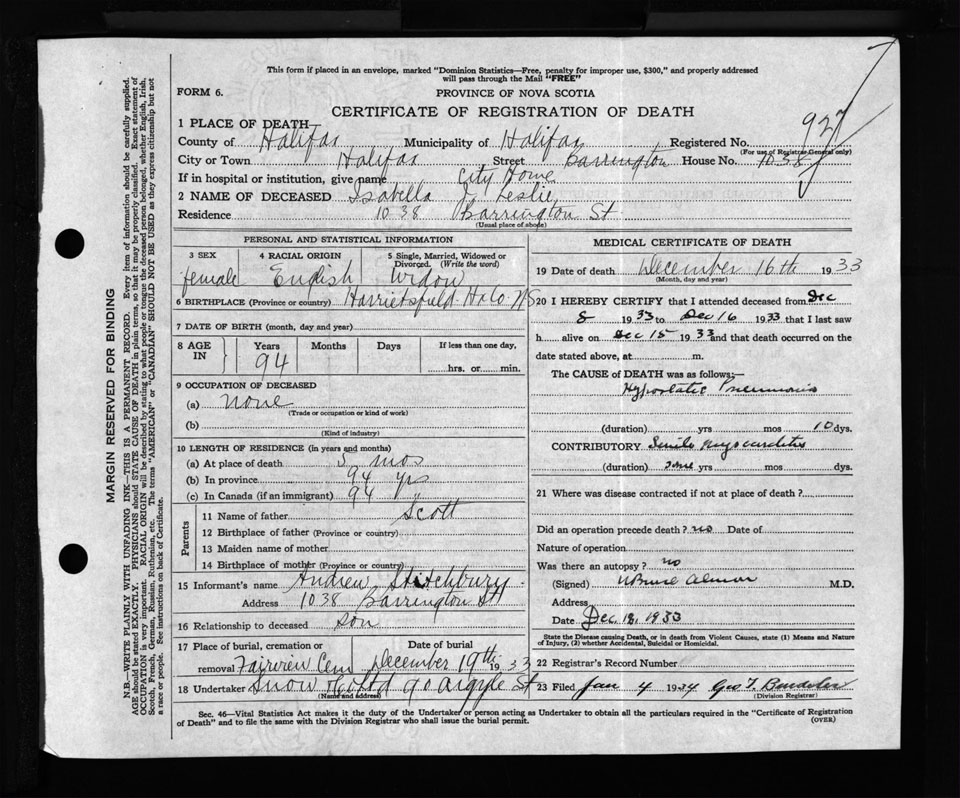 This form if placed in an envelope, marked "Dominion Statistics—Free, penalty for improper use, $300," and properly addressed
will pass through the Mail "FREE"
FORM 6.
PROVINCE OF NOVA SCOTIA
CERTIFICATE OF REGISTRATION OF DEATH
927
1 PLACE OF DEATH—
County of Halifax Municipality of Halifax Registered No.
(For use of Registrar General only)
City or Town Halifax Street Barrington House No. 1038
If in hospital or institution, give name City Home
2 NAME OF DECEASED Isabella J. Leslie
Residence 1038 Barrington St
(Usual place of abode)
PERSONAL AND STATISTICAL INFORMATION
3 SEX 4 RACIAL ORIGIN 5 Single, Married, Widowed or Divorced. (Write the word)
female English Widow
6 BIRTHPLACE (Province or country) Harrietsfield Hx Co. NS
7 DATE OF BIRTH (month, day and year)
8 AGE IN Years Months Days If less than one day,
94 hrs. or min.
9 OCCUPATION OF DECEASED
(a) none
(Trade or occupation or kind of work)
(b)
(Kind of industry)
10 LENGTH OF RESIDENCE (in years and months)
(a) At place of death 5 mos
(b) In province 94 yrs
(c) In Canada (if an immigrant) 94 "
Parents
11 Name of father Scott
12 Birthplace of father (Province or country)
13 Maiden name of mother
14 Birthplace of mother (Province or country)
15 Informant's name Andrew Stitchbury
Address 1038 Barrington St
16 Relationship to deceased son
17 Place of burial, cremation or removal Date of burial
Fairview Cem December 19th 1933
18 Undertaker Snow & Co Ltd 90 Argyle St
(Name and address)
MEDICAL CERTIFICATE OF DEATH
19 Date of death December 16th 1933
(Month, day and year)
20 I HEREBY CERTIFY that I attended deceased from Dec
8 1933 to Dec 16 1933 that I last saw
h alive on Dec 15 1933 and that death occurred on the
date stated above, at m.
The CAUSE of DEATH was as follows:—
Hypostatic Pneumonia
(duration) yrs mos 10 dys.
CONTRIBUTORY Senile Myocarditis
(duration) some yrs mos dys.
21 Where was disease contracted if not at place of death?
Did an operation precede death? no Date of
Nature of operation
Was there an autopsy? no
(Signed) Almon M.D.
Address
Date Dec. 18, 1933
State the Disease causing Death, or in death from Violent Causes, state (1) Means and Nature
of Injury, (2) whether Accidental, Suicidal or Homicidal.
22 Registrar's Record Number
23 Filed Jan 4 1934 Geo T.
(Division Registrar)
Sec. 46—Vital Statistics Act makes it the duty of the Undertaker or person acting as Undertaker to obtain all the particulars required in the "Certificate of Registration
of Death" and to file the same with the Division Registrar who shall issue the burial permit.
(OVER)
MARGIN RESERVED FOR BINDING
N.B.—WRITE PLAINLY WITH UNFADING INK—THIS IS A PERMANENT RECORD. Every item of information should be carefully supplied.
AGE should be stated EXACTLY. PHYSICIANS should STATE CAUSE OF DEATH in plain terms, so that it may be properly classified. Exact statement of
OCCUPATION is very important. RACIAL ORIGIN will be described by stating to what people or tongue the deceased person belonged, whether English, Irish,
Scotch, French, German, Russian, Ruthenian, etc. The terms "AMERICAN" or "CANADIAN" SHOULD NOT BE USED as they express citizenship but not
a race or people. See instructions on back of Certificate.